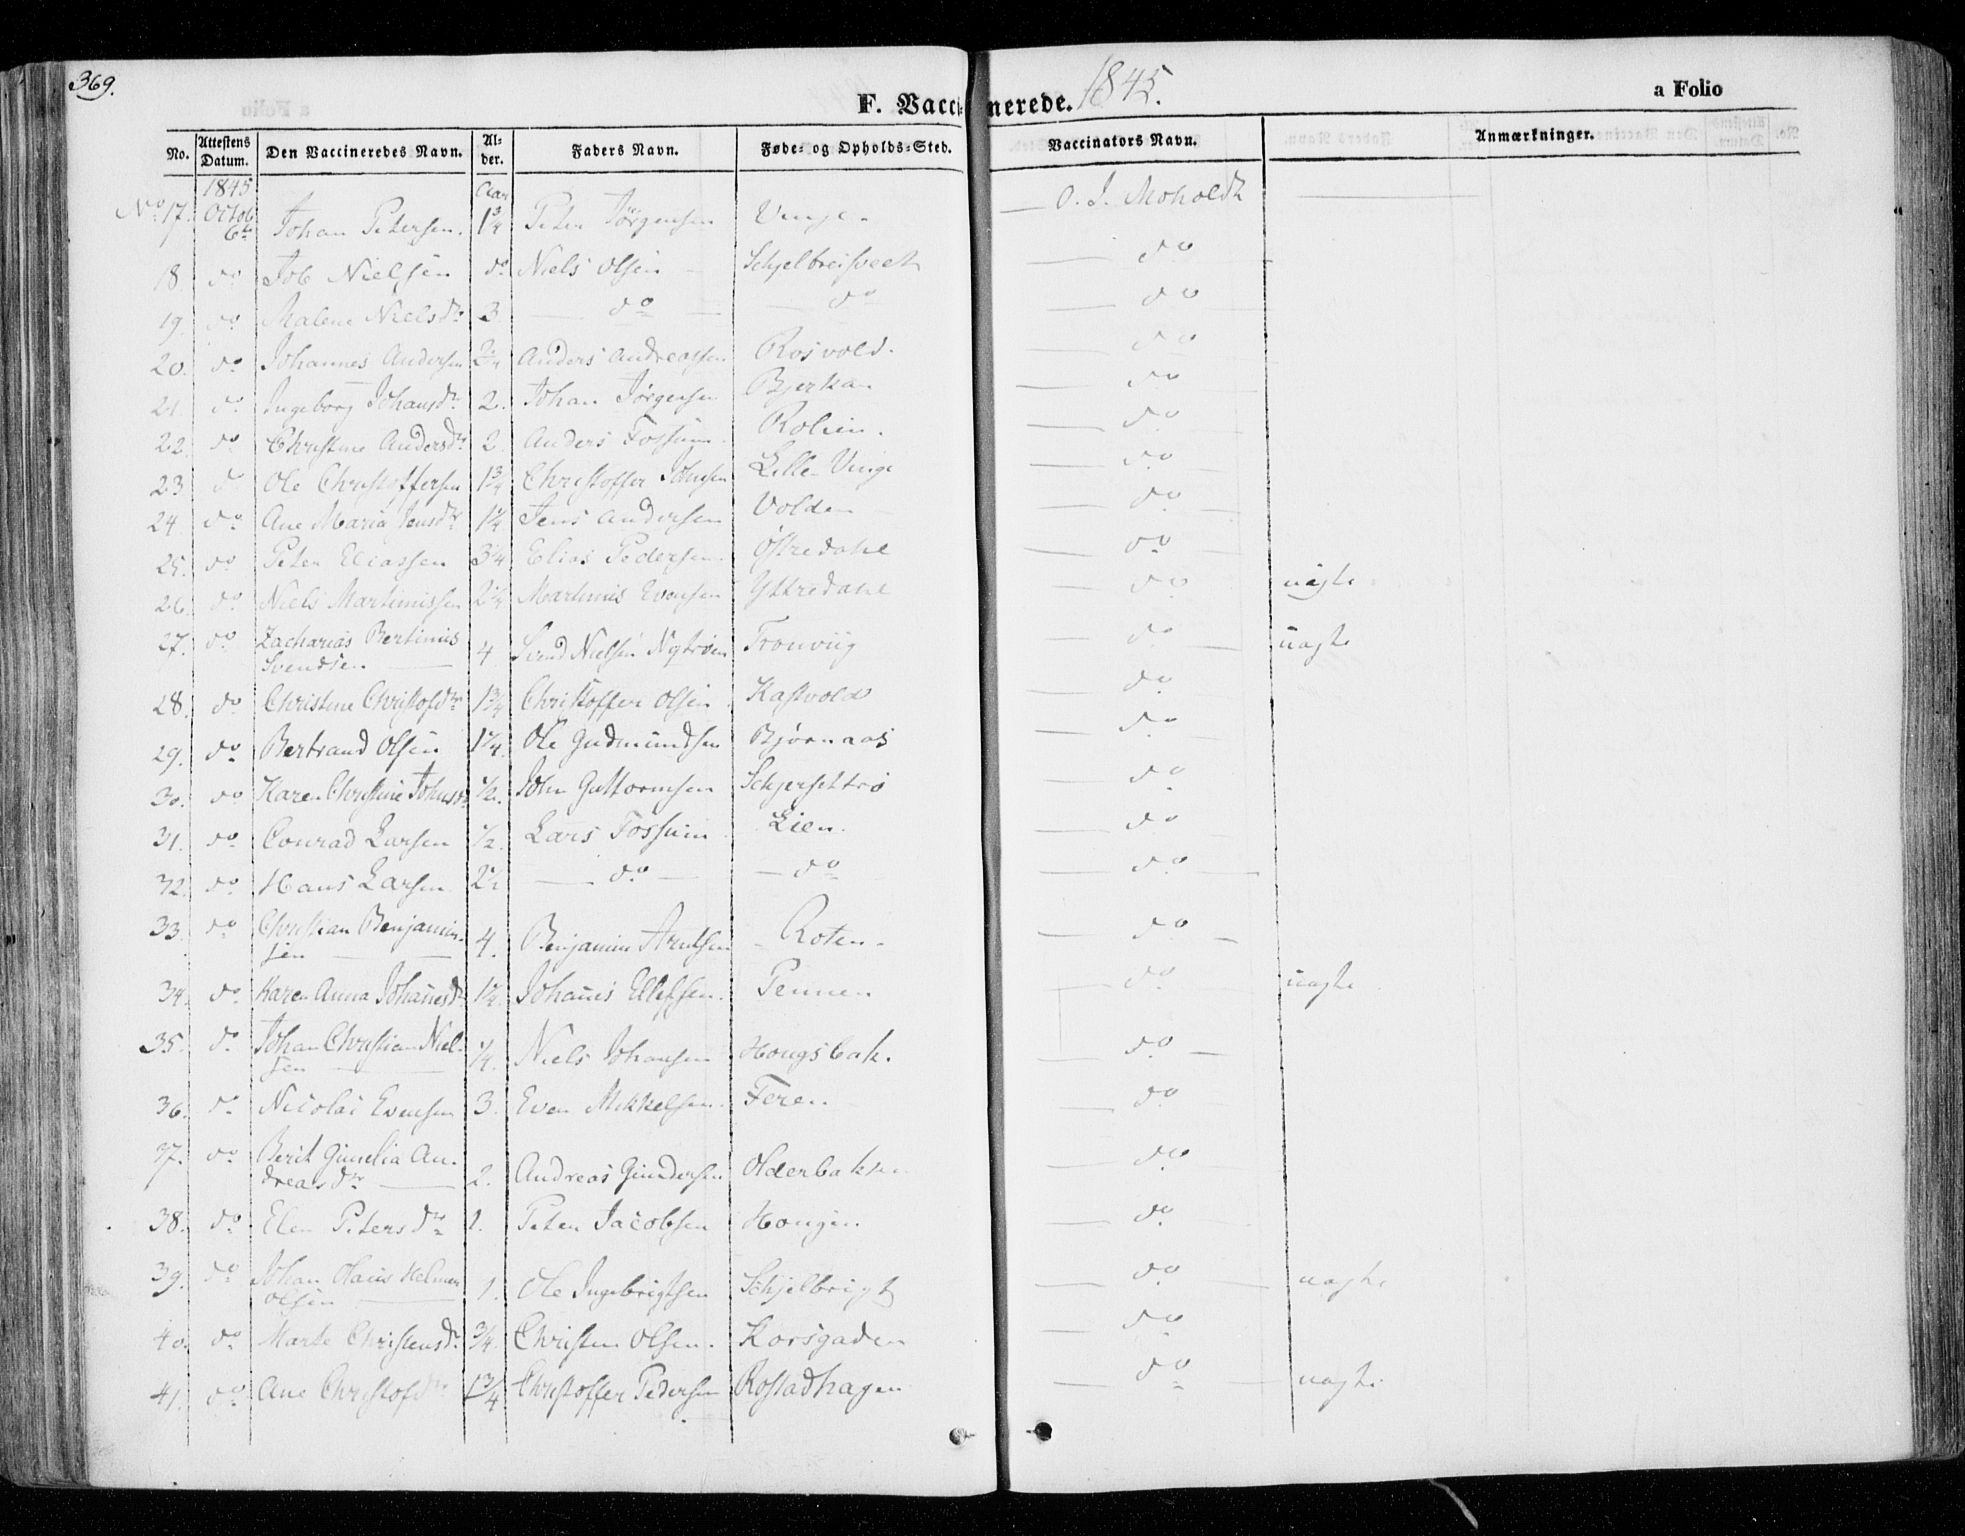 369.
F. Vaccinerede. 1845.
a Folio
No. Attestens Datum. Den Vaccineredes Navn. Al-der. Faders Navn. Føde- og Opholds-Sted. Vaccinators Navn. Anmærkninger.
1845 Aar
No. 17. Octob 6te Johan Petersen. 1 3/4 Peter Jörgensen Vinge O. J. Moholdt
18. do Job Nielsen do Niels Olsen do
19. do Malene Nielsdr. 3 do do do
20. do Johannes Andersen Anders Andreassen Rosvold. do
21. do Ingeborg Johansdr. 2. Johan Jørgensen Bjerkan do
22. do Christine Andersdr. 2 Anders Fossum Rolien. do
23 do Ole Christoffersen 1 3/4 Christoffer Johnsen Lille Vinge do
24 do Ane Maria Jensdr. 1 1/4 Jens Andersen Volden do
25. do Peter Eliassen 3 1/4 Elias Pedersen Østredahl do
26. do Niels Martinussen 2 1/4 Martinus Evensen Yttredahl do uægte
27. do Zacharias Bertinus Svendsen 4 Svend Nielsen Nytrøen Tronviig do uægte
28. do Christine Christofdr. 1 3/4 Christoffer Olsen Kastvold do
29. do Bertrand Olsen 1 1/4. Ole Gudmundsen Bjørnaas do
30. do Karen Christine Johnsdr 1/2. John Guttormsen do
31. do Conrad Larsen 1/2. Lars Fossum Lien. do
32. do Hans Larsen 2 1/2 do do do
33. do Christian Benjamin-sen 4. Benjamin Arntsen Roten do
34. do Karen Anna Johanesdr Johanes Ellefsen. Pennen do uægte
35. do Johan Christian Niel-sen 1/4. Niels Johansen Hougsbak. do
36. do Nicolai Evensen 3. Even Mikkelsen. Feren do
37. do Berit Gunelia An-dreasdr. 2. Andreas Gundersen Olderbakken do
38. do Elen Petersdr. 1. Peter Jacobsen Hougen do
39. do Johan Olaus Helmer Olsen 1. Ole Ingebrigtsen Schjelbrigt do uægte
40. do Marte Christensdr. 3/4. Christen Olsen. Korsgaden do
41. do Ane Christofdr 1 3/4 Christoffer Pedersen Rostadhagen do uægte